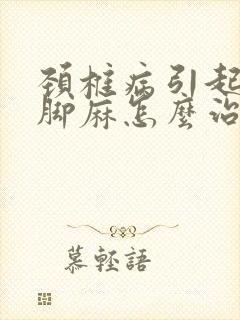 頚椎病引起
脚麻怎麼治
慕輕語